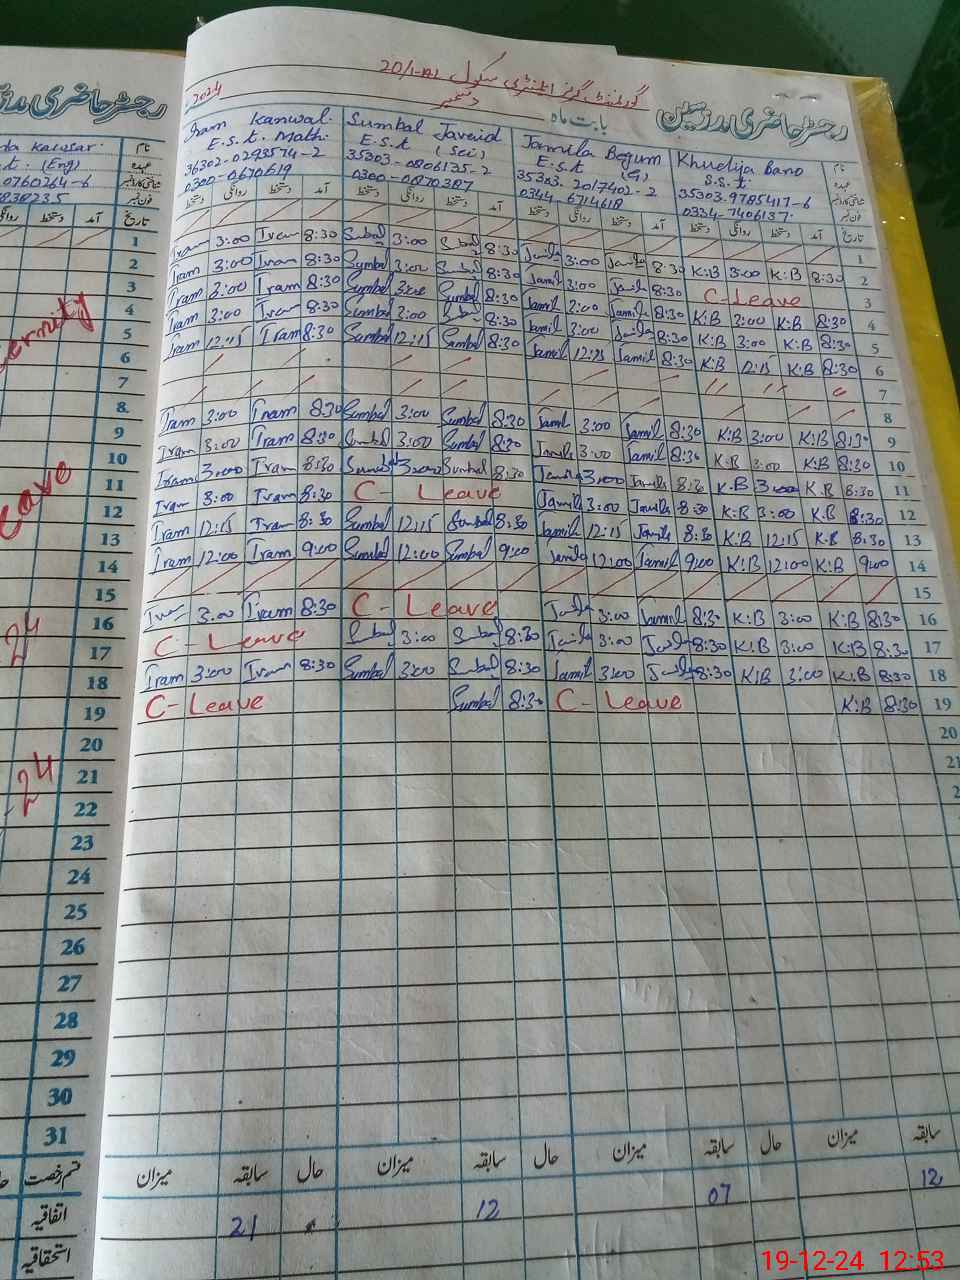 گورنمنٹ گرلز ایلمنٹری سکول
2024
دسمبر
رجسٹر حاضری مدرسین
بابت ماہ
رجسٹر حاضری مدرسین
Iram Kanwal.
E.S.t. Math.
36302-0293574-2
0300-0670619
Sumbal Javeid
E.S.t (Sci)
35303-0806135-2
Jamila Begum
E.S.t (G)
35303-2017402-2
0344-6714618
Khudija Bano
S.S.t.
35303.9785417-6
0334-7406137.
Kausar.
t. (Eng)
0760264-6
نام
عہدہ
شناختی کارڈ نمبر
فون نمبر
تاریخ
آمد
دستخط
روانگی
دستخط
1
2 Iram 3:00 Iram 8:30 Sumbal 3:00 Sumbal 8:30 Jamila 3:00 Jamila 8:30 K:B 3:00 K:B 8:30
3 Iram 3:00 Iram 8:30 Sumbal 3:00 Sumbal 8:30 Jamil 3:00 Jamil 8:30 C-Leave
4 Iram 3:00 Iram 8:30 Sumbal 3:00 Sumbal 8:30 Jamil 3:00 Jamil 8:30 K:B 3:00 K:B 8:30
5 Iram 3:00 Iram 8:30 Sumbal 3:00 Sumbal 8:30 Jamil 3:00 Jamila 8:30 K:B 3:00 K:B 8:30
6 Iram 12:15 Iram 8:30 Sumbal 12:15 Sumbal 8:30 Jamil 12:15 Jamil 8:30 K:B 12:15 K:B 8:30
7
8
9 Iram 3:00 Iram 8:30 Sumbal 3:00 Sumbal 8:30 Jamil 3:00 Jamil 8:30 K:B 3:00 K:B 8:30
10 Iram 3:00 Iram 8:30 Sumbal 3:00 Sumbal 8:30 Jamila 3:00 Jamil 8:30 K.B 3:00 K:B 8:30
11 Iram 3:00 Iram 8:30 Sumbal 3:00 Sumbal 8:30 Jamila 3:00 Jamila 8:30 K.B 3:00 K.B 8:30
12 Iram 3:00 Iram 8:30 C- Leave Jamil 3:00 Jamila 8:30 K:B 3:00 K.B 8:30
13 Iram 12:15 Iram 8:30 Sumbal 12:15 Sumbal 8:30 Jamil 12:15 Jamil 8:30 K:B 12:15 K:B 8:30
14 Iram 12:00 Iram 9:00 Sumbal 12:00 Sumbal 9:00 Jamila 12:00 Jamil 9:00 K:B 12:00 K:B 9:00
15
16 3:00 Iram 8:30 C- Leave Jamila 3:00 Jamil 8:30 K:B 3:00 K:B 8:30
17 C- Leave Sumbal 3:00 Sumbal 8:30 Jamila 3:00 Jamila 8:30 K:B 3:00 K:B 8:30
18 Iram 3:00 Iram 8:30 Sumbal 3:00 Sumbal 8:30 Jamil 3:00 Jamila 8:30 K:B 3:00 K:B 8:30
19 C- Leave Sumbal 8:30 C- Leave K:B 8:30
20
21
22
23
24
25
26
27
28
29
30
31
Leave
24
24
قسم رخصت
میزان سابقہ حال میزان سابقہ حال میزان سابقہ حال میزان سابقہ
اتفاقیہ
21 12 07 12
استحقاقیہ
19-12-24 12:53